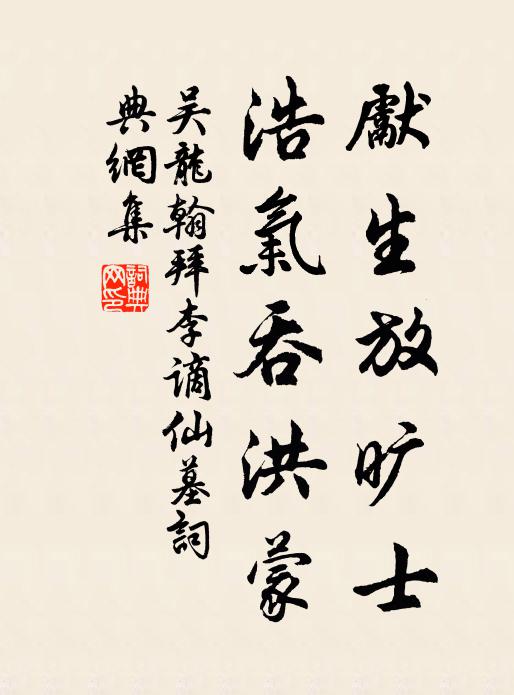 獻生放旷士
浩氣吞洪蒙
吴龍翰拜李谪仙墓詞
典網集
詞典
网印